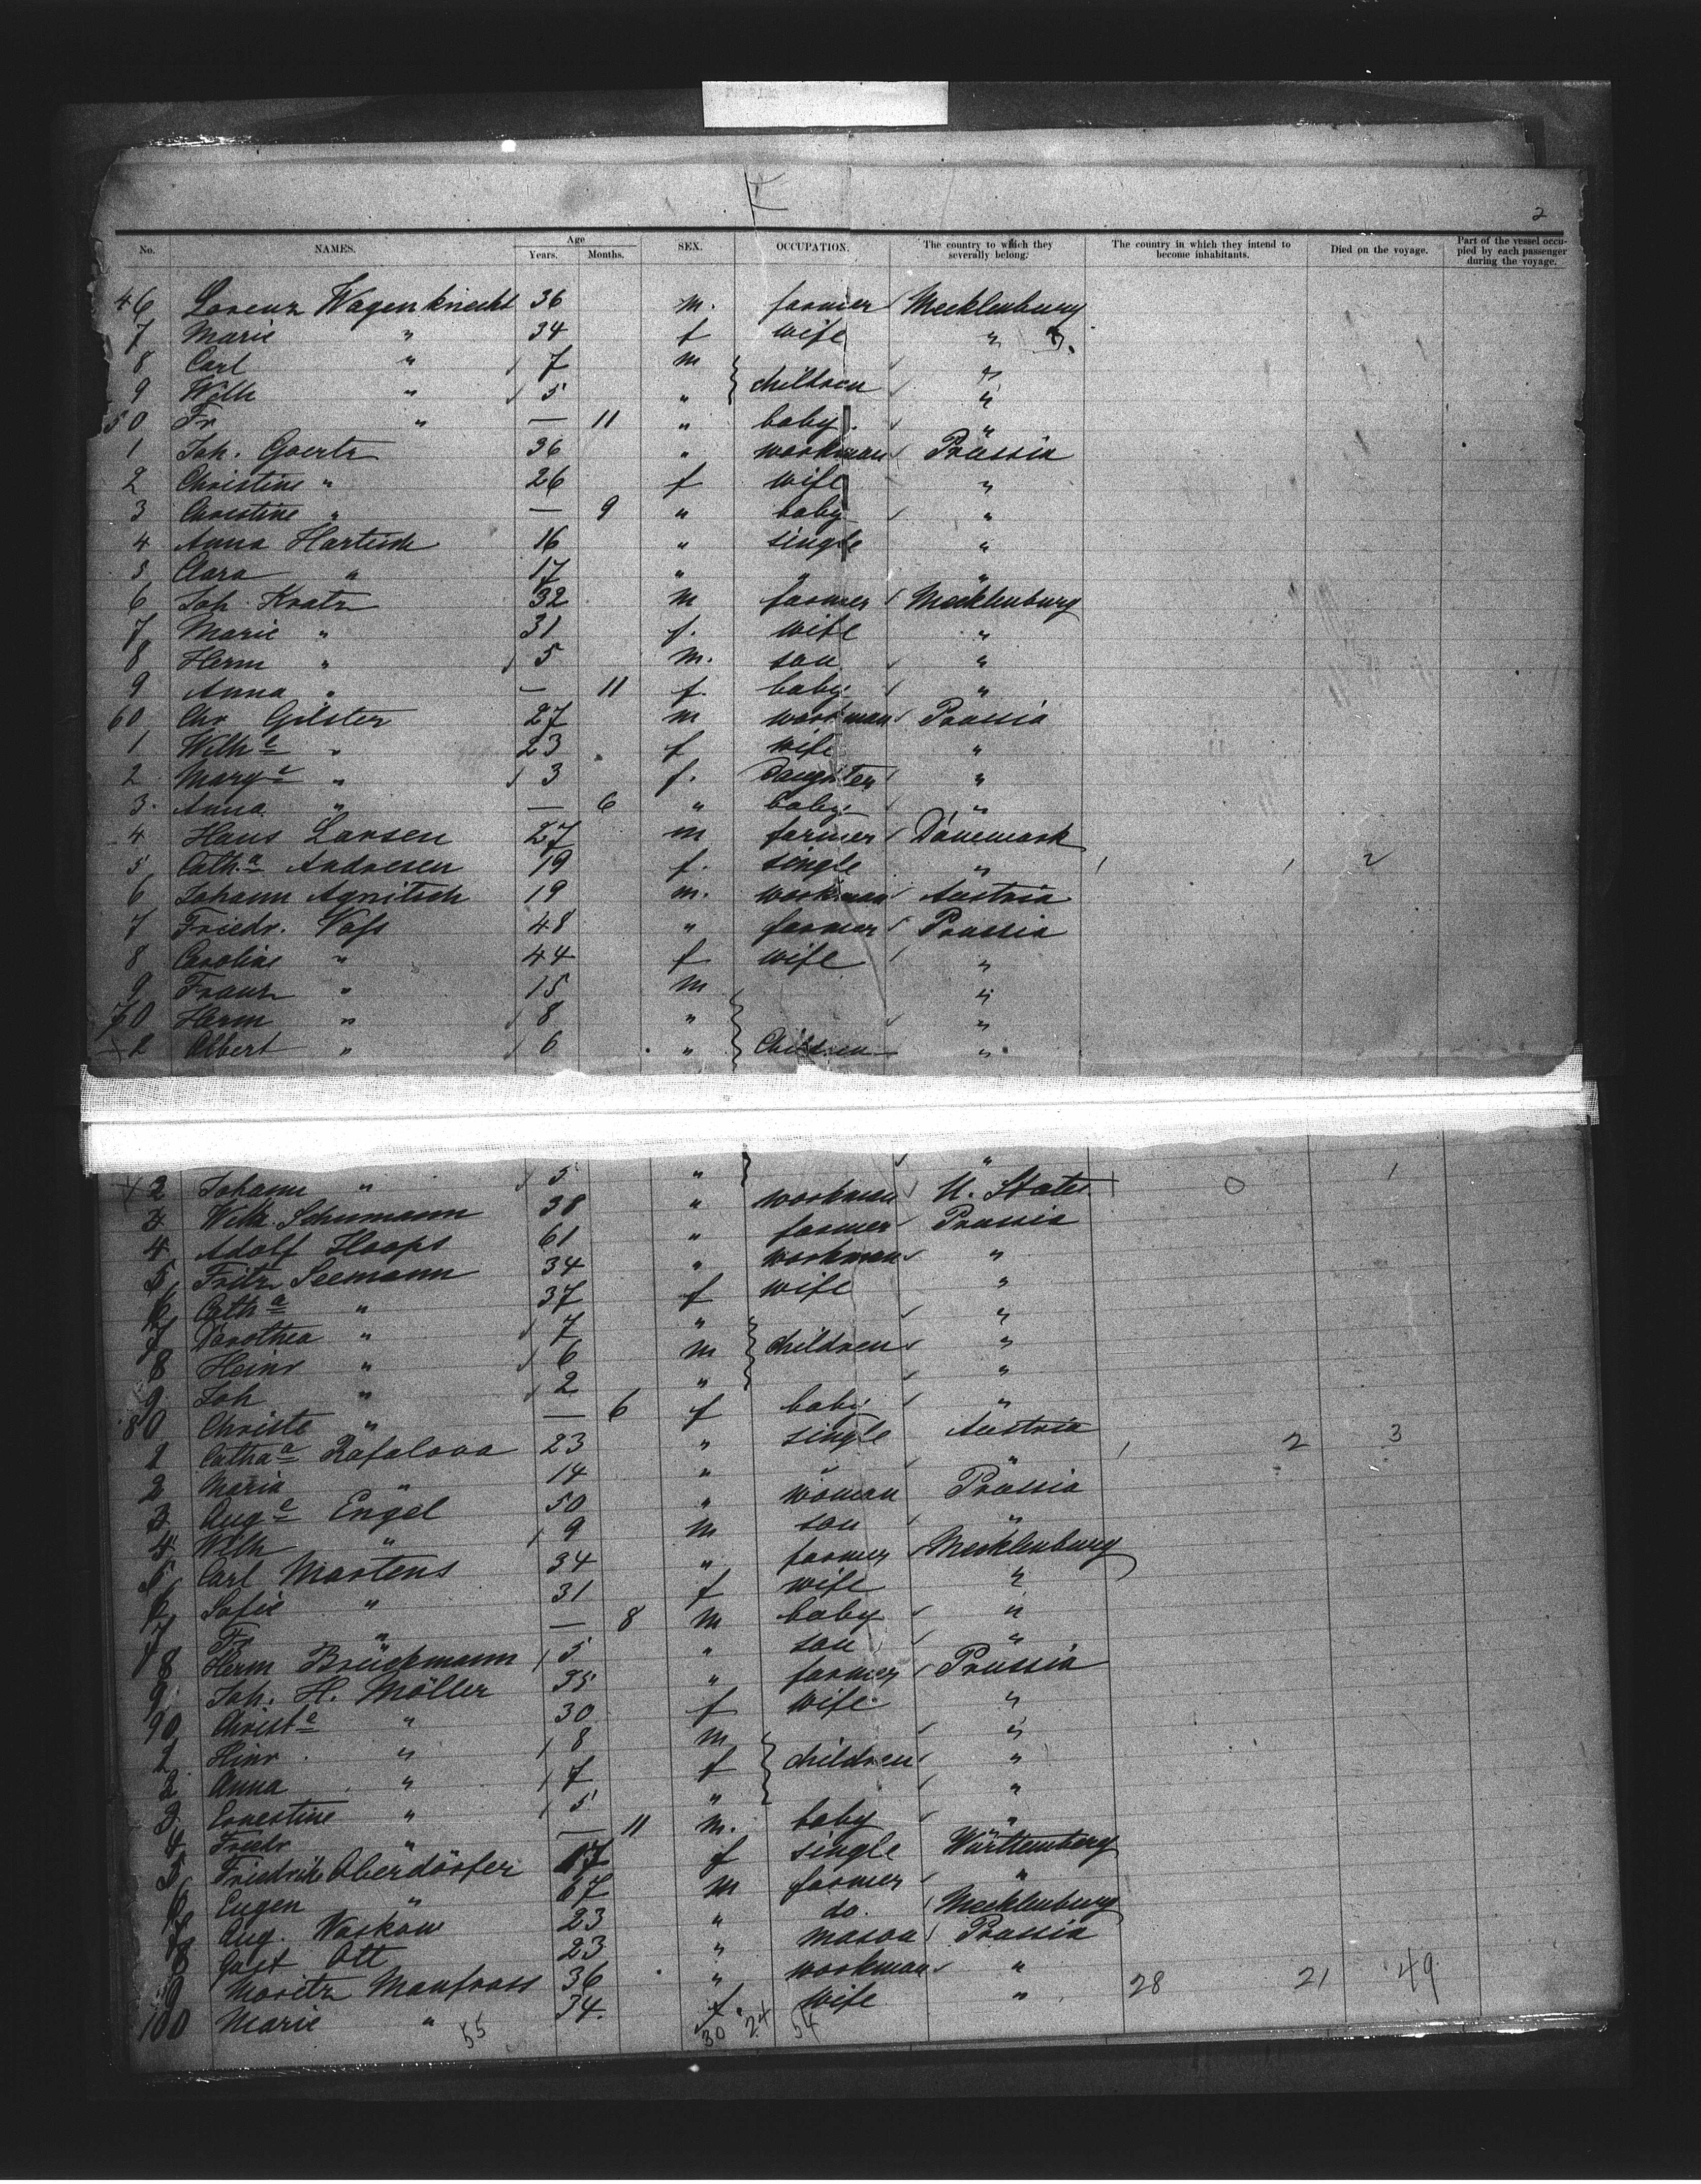 2
No. NAMES. Age Years. Months. SEX. OCCUPATION. The country to which they severally belong. The country in which they intend to become inhabitants. Died on the voyage. Part of the vessel occupied by each passenger during the voyage.
46 Lorenz Wagenknecht 36 m. farmer Mecklenburg
7 Marie " 34 f wife "
8 Carl " 7 m children "
9 Wilh " 5 " "
50 Fr " — 11 " baby "
1 Joh. Goertz 36 " workman Prussia
2 Christine " 26 f wife "
3 Christine " — 9 " baby "
4 Anna Hartich 16 " single "
5 Clara " 17 " " "
6 Joh. Kratz 32 m farmer Mecklenburg
7 Marie " 31 f. wife "
8 Herm " 5 m. son "
9 Anna " — 11 f. baby "
60 Chr Gilster 27 m workman Prussia
1 Wilhe " 23 f wife "
2 Marge " 3 f. Daughter "
3 Anna " — 6 " baby "
4 Hans Larsen 27 m farmer Dänemark
5 Catha Andresen 19 f. single " 1 1 2
6 Johann Agnitsch 19 m. workman Austria
7 Friedr. Voss 48 " farmer Prussia
8 Caroline " 44 f wife "
9 Franz " 15 m "
70 Herm " 8 " "
Albert " 6 " Children "
2 Johann " 5 " "
3 Wilh. Schumann 38 " workman U. States 0 1
4 Adolf Hoops 61 " farmer Prussia
5 Fritz Seemann 34 " workman "
6 Catha " 37 f wife "
7 Dorothea " 7 " children "
8 Heinr " 6 m "
9 Joh " 2 " "
80 Christe " — 6 f baby "
1 Catha Rafalova 23 " single Austria 1 2 3
2 Maria " 14 " " "
3 Auge Engel 50 " woman Prussia
4 Wilh " 9 m son "
5 Carl Martens 34 " farmer Mecklenburg
6 Sofie " 31 f wife "
7 Fr " — 8 m baby "
8 Herm Brückmann 5 " son "
9 Joh. H. Möller 35 " farmer Prussia
90 Christe " 30 f wife "
1 Hinr. " 8 m children "
2 Anna " 7 f "
3 Ernestine " 5 " "
4 Friedr " — 11 m. baby "
5 Friedrike Oberdörfer 17 f single Württemberg
6 Eugen " 67 m farmer "
7 Aug. Waskow 23 " do. Mecklenburg
8 Gust Ott 23 " mason Prussia
9 Moritz Manfrass 36 " workman "
100 Marie " 34. f wife " 28 21 49
55 30 24 54